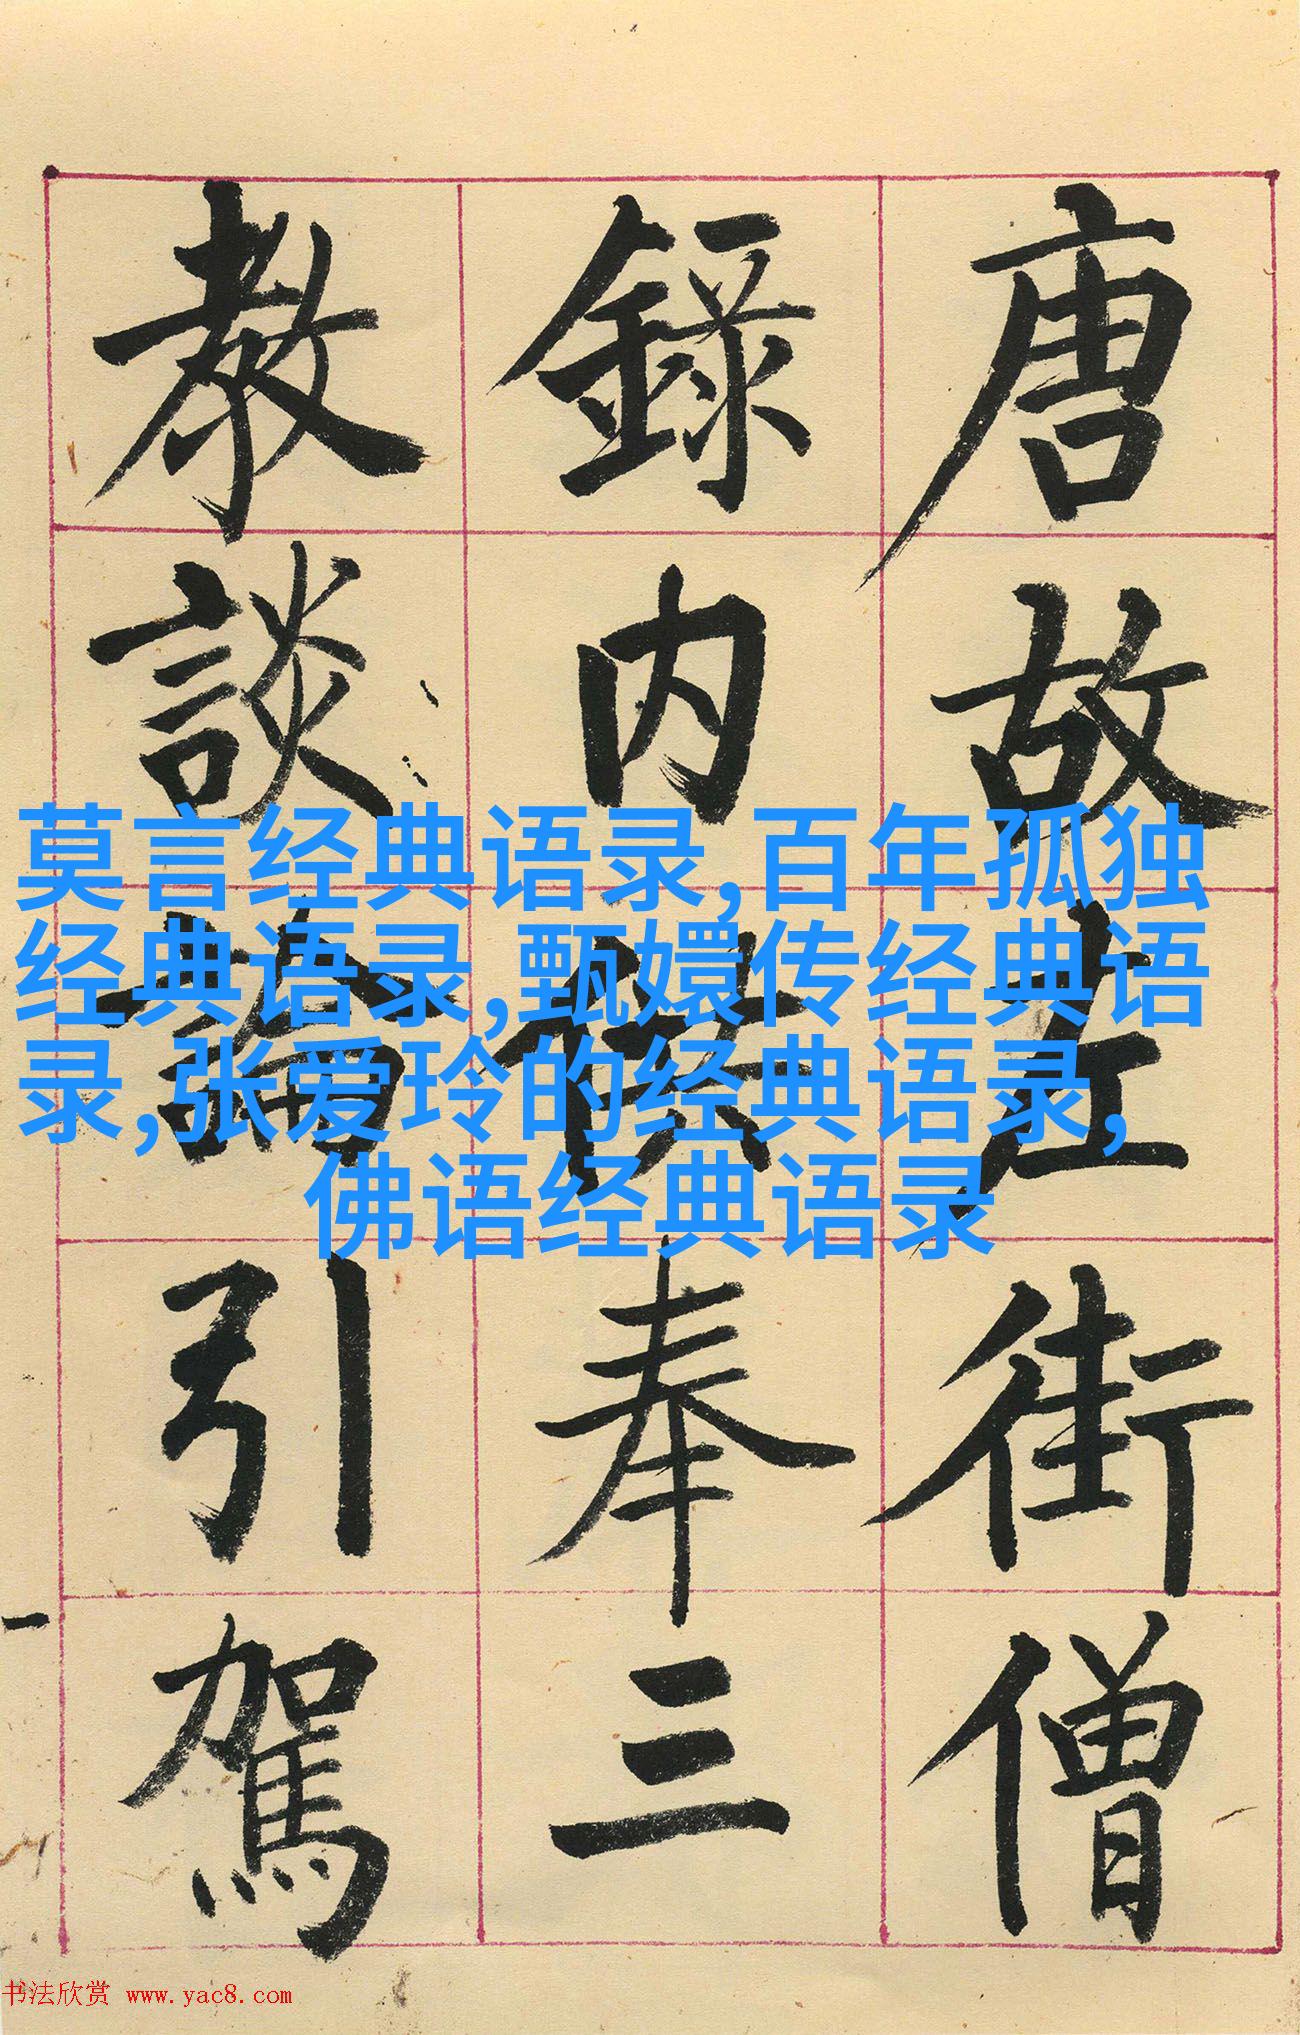 唐故左街僧
錄内供奉三
教談論引駕
莫言经典语录,百年孤独
经典语录,甄嬛传经典语
录,张爱玲的经典语录,
佛语经典语录
书法欣赏 www.yac8.com